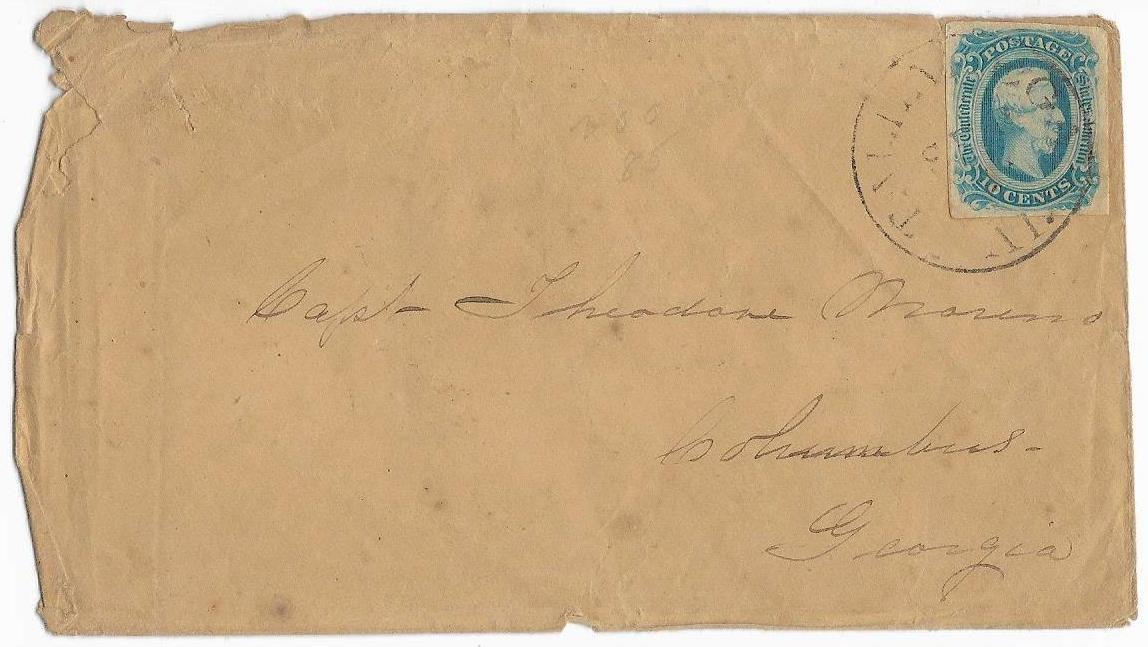 POSTAGE
The Confederate States America
10 CENTS
186
85
Capt- Theodore Moreno
Columbus-
Georgia